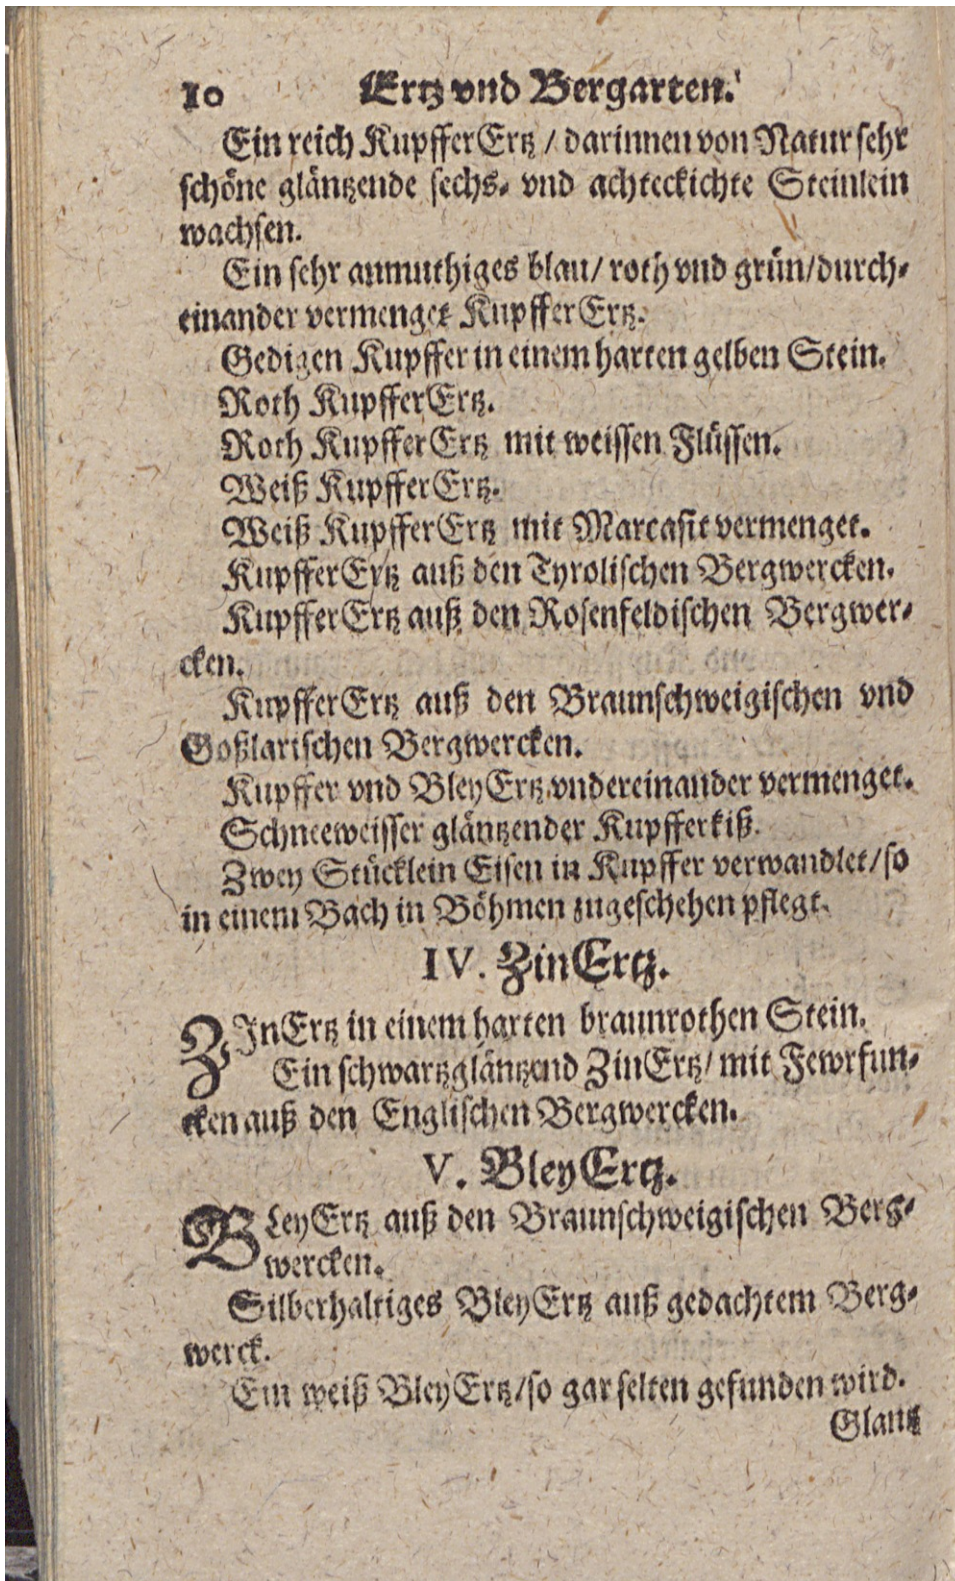 10 Ertz vnd Bergarten.
Ein reich KupfferErtz / darinnen von Natur sehr
schöne gläntzende sechs- vnd achteckichte Steinlein
wachsen.
Ein sehr anmuthiges blau / roth vnd grün / durch-
einander vermenget KupfferErtz.
Gedigen Kupffer in einem harten gelben Stein.
Roth KupfferErtz.
Roth KupfferErtz mit weissen Flüssen.
Weiß KupfferErtz.
Weiß KupfferErtz mit Marcasit vermenget.
KupfferErtz auß den Tyrolischen Bergwercken.
KupfferErtz auß den Rosenfeldischen Bergwer-
cken.
KupfferErtz auß den Braunschweigischen vnd
Goßlarischen Bergwercken.
Kupffer vnd BleyErtz vndereinander vermenget.
Schneeweisser gläntzender Kupfferkiß.
Zwey Stücklein Eisen in Kupffer verwandlet / so
in einem Bach in Böhmen zugeschehen pflegt.
IV. ZinErtz.
ZInErtz in einem harten braunrothen Stein.
Ein schwartzgläntzend ZinErtz / mit Fewrfun-
cken auß den Englischen Bergwercken.
V. BleyErtz.
BLeyErtz auß den Braunschweigischen Berg-
wercken.
Silberhaltiges BleyErtz auß gedachtem Berg-
werck.
Ein weiß BleyErtz / so gar selten gefunden wird.
Glantz